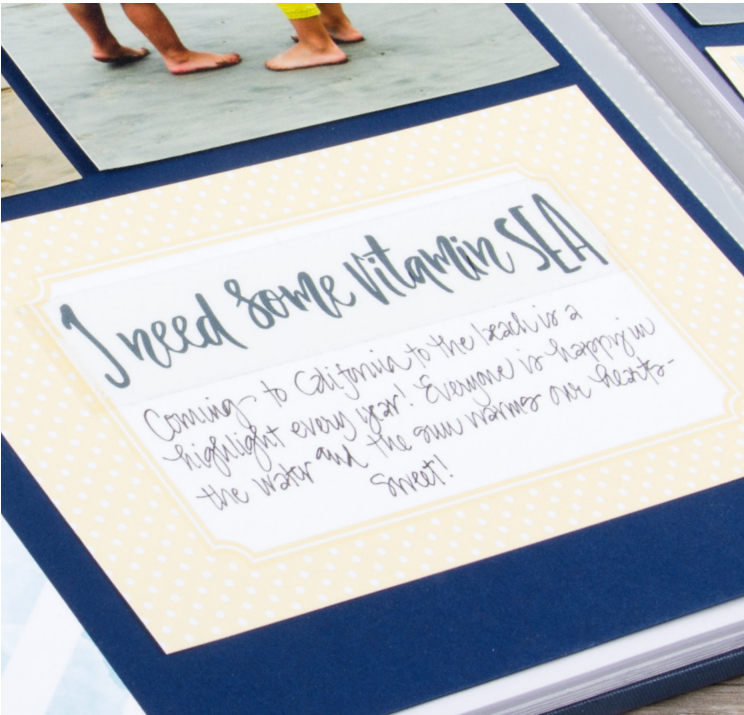 I need some vitamin SEA
Coming to California to the beach is a
highlight every year! Everyone is happy in
the water and the sun warms our hearts-
sweet!